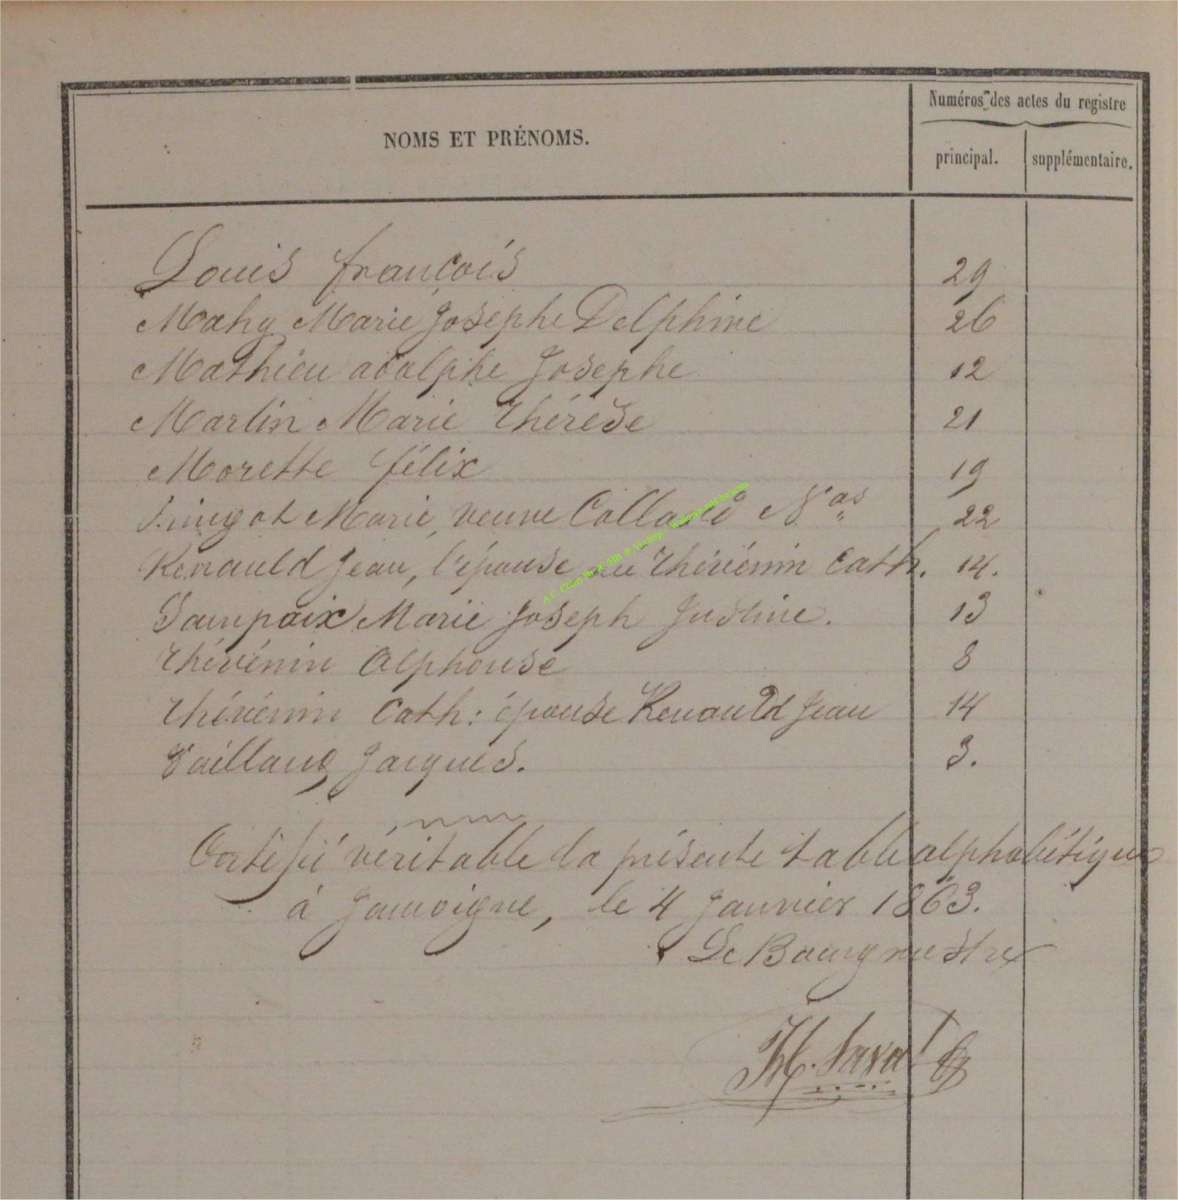 Numéros des actes du registre
NOMS ET PRÉNOMS.
principal. supplémentaire.
Louis françois 29
Mahy Marie Josephe Delphine 26
Mathieu adolphe Josephe 12
Martin Marie thérèse 21
Morette félix 19
Marie, veuve Collard Nas 22
Renauld Jean, l'épouse née thévénin Cath. 14.
Saupaix Marie Joseph Justine. 13
thévénin Alphonse 8
thévénin Cath: épouse Renauld Jean 14
Vaillant Jacques. 3.
Certifié véritable la présente table alphabétique
à Jamoigne, le 4 Janvier 1863.
Le Bourgmestre